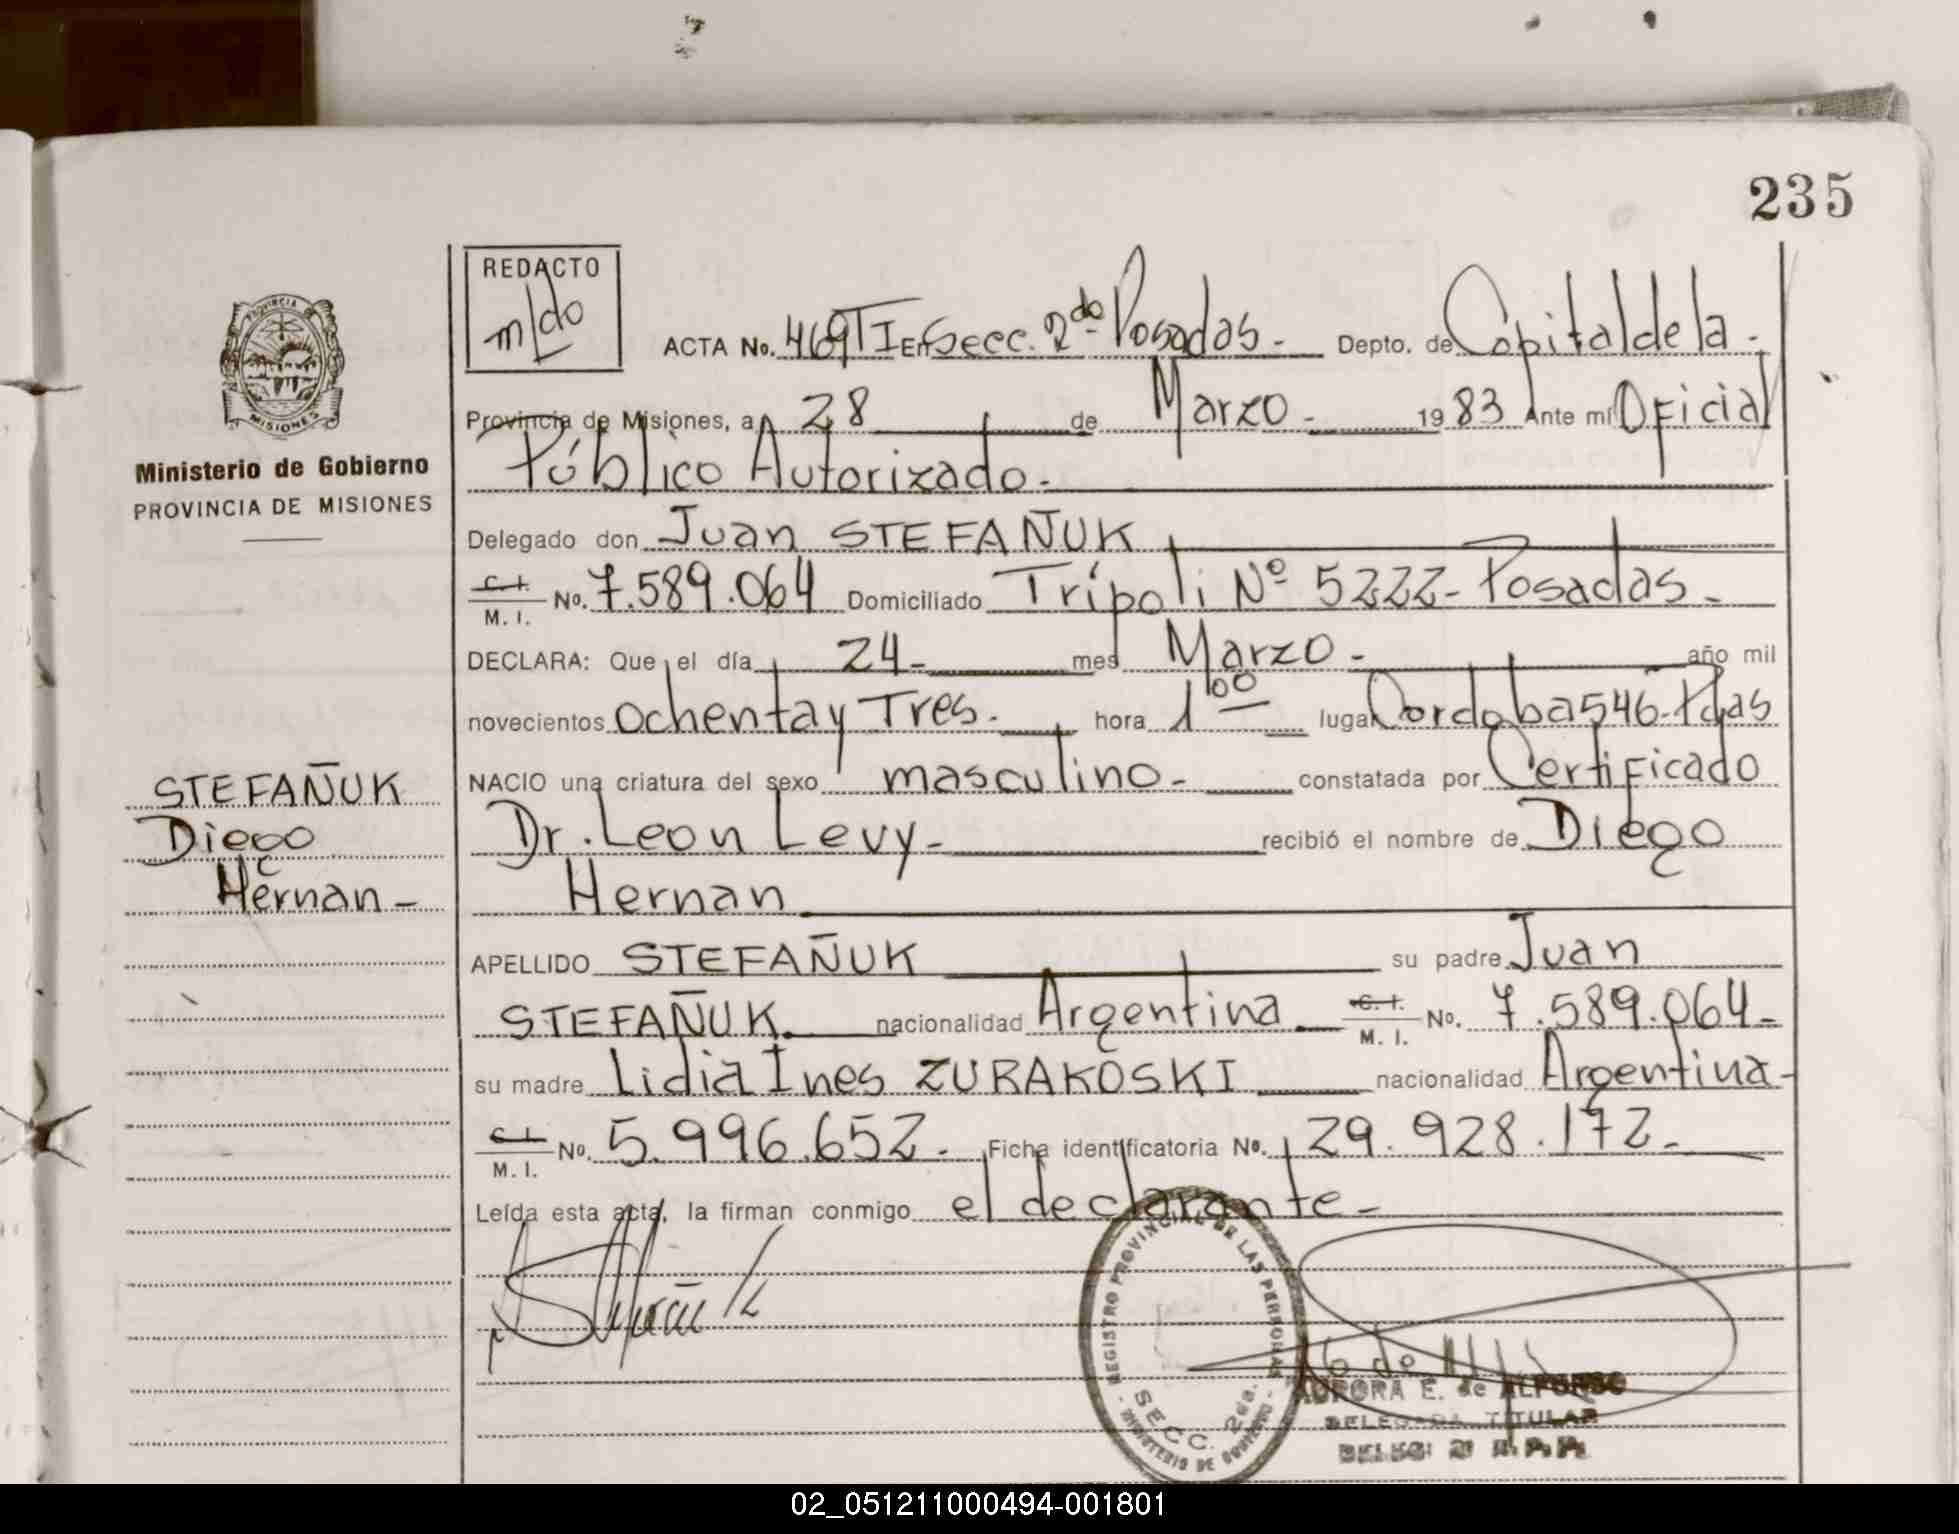 235
REDACTO
mldo
ACTA No. 469 T I En Secc. 2do Posadas.- Depto. de Capital de la.-
Provincia de Misiones, a 28 de Marzo.- 19 83 Ante mí Oficial
Público Autorizado.-
Delegado don Juan STEFAÑUK
C. I. No. 7.589.064 Domiciliado Trípoli Nº 5222- Posadas.-
M. I.
DECLARA: Que el día 24- mes Marzo- año mil
novecientos ochenta y Tres.- hora 1 00 lugar Cordoba 546-Pdas
NACIO una criatura del sexo masculino- constatada por Certificado
Dr. Leon Levy- recibió el nombre de Diego
Hernan
APELLIDO STEFAÑUK su padre Juan
STEFAÑUK. nacionalidad Argentina C. I. No. 7.589.064-
M. I.
su madre Lidia Ines ZURAKOSKI nacionalidad Argentina-
C. I. No. 5.996.652.- Ficha identificatoria No. 29.928.172.-
M. I.
Leída esta acta, la firman conmigo el declarante-
PROVINCIA
MISIONES
Ministerio de Gobierno
PROVINCIA DE MISIONES
STEFAÑUK
Diego
Hernan-
REGISTRO PROVINCIAL DE LAS PERSONAS
SECC. 2da.
MINISTERIO DE GOBIERNO
AURORA E. de ALFONSO
DELEGADA TITULAR
02_051211000494-001801